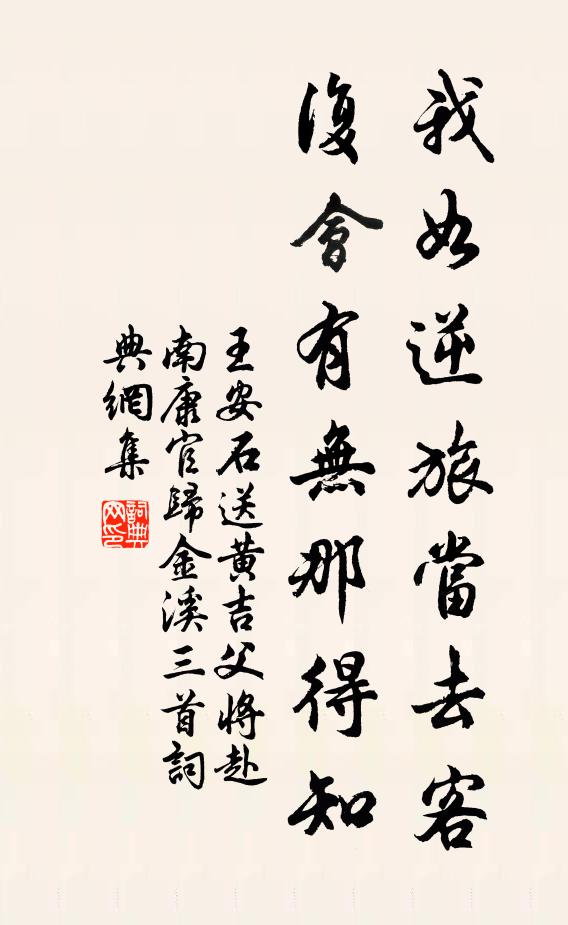 我如逆旅當去客
復會有無那得知
王安石送黃吉父將赴
南康官歸金溪三首詞
典網集
詞典网印